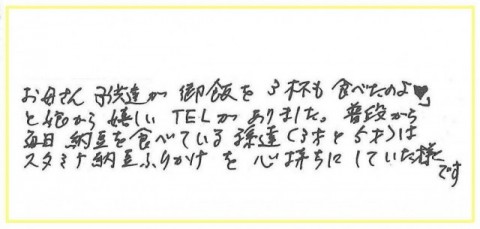 お母さん 子供達が 御飯を 3杯も 食べたのよ♥
と娘から 嬉しい TELが ありました。普段から
毎日 納豆を食べている 孫達(3才と5才)は
スタミナ納豆ふりかけ を 心待ちに していた様
です